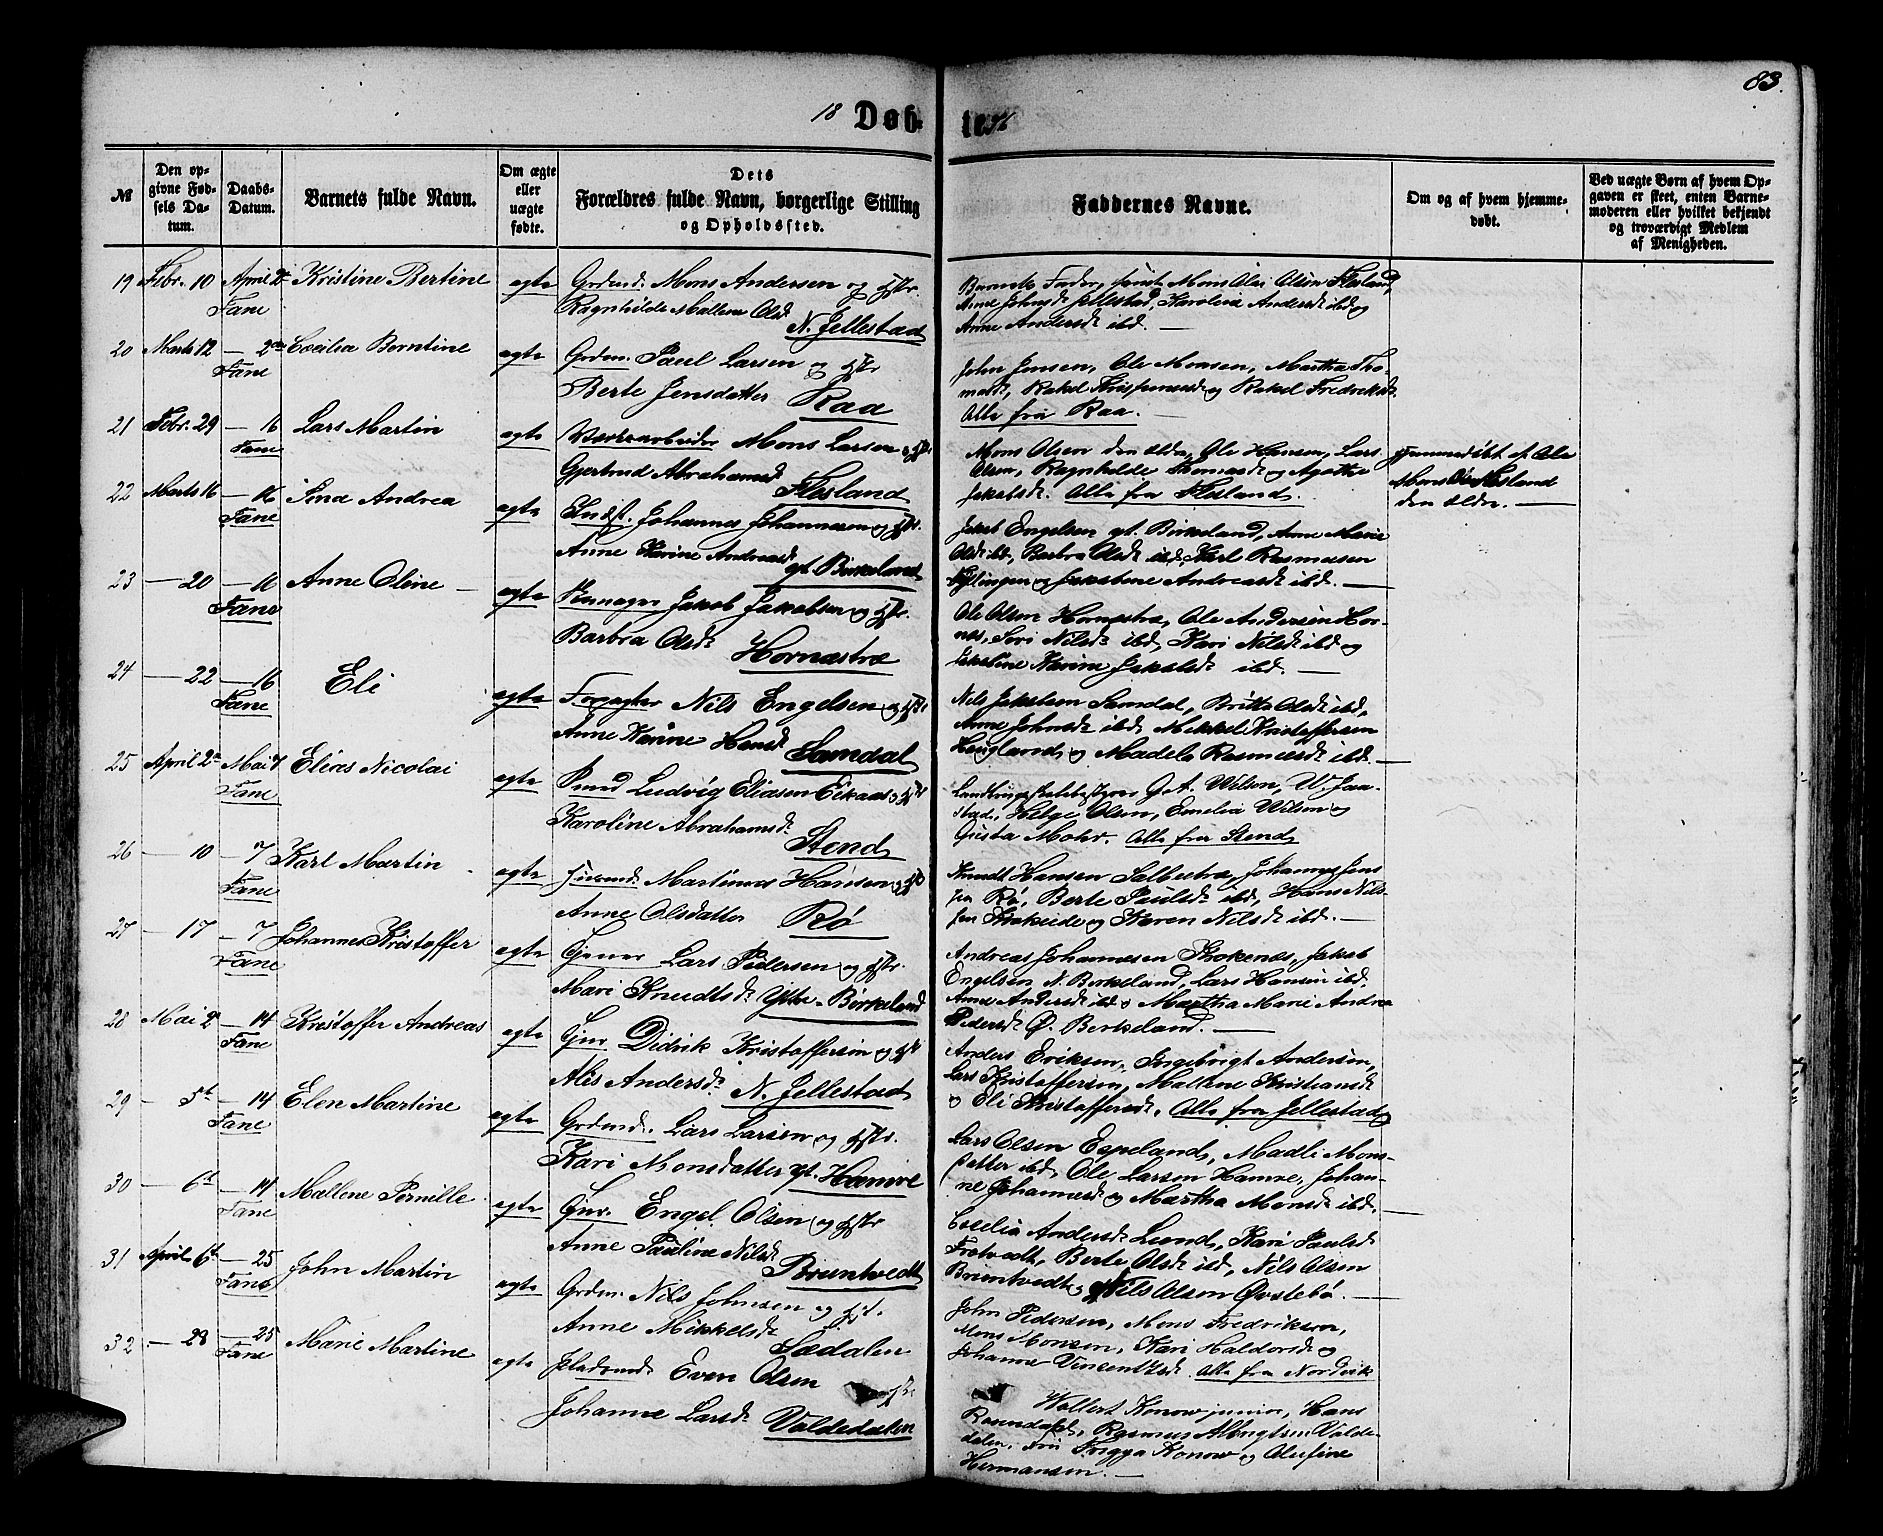 83.
18 Døb-
te
№
Den op-
givne Fød-
sels Da-
tum.
Daabs-
Datum.
Barnets fulde Navn.
Om ægte
eller
uægte
fødte.
Dets
Forældres fulde Navn, borgerlige Stilling
og Opholdssted.
Faddernes Navne.
Om og af hvem hjemme-
døbt.
Ved uægte Børn af hvem Op-
gaven er skeet, enten Barne-
moderen eller hvilket bekjendt
og troværdigt Medlem
af Menigheden.
19 Febr. 10 April 2 Kristine Bertine egte Grdmd. Mons Andersen og Hstr.
Fane Ragnhilde Mallene Olsd
N. Jellestad
Barnets Fader, Mons Olsen Flesland,
Anne Johnsd Jellestad, Karolina Andersd ibd og
Anne Andersd ibd. —
20 Marts 12 — 2 Cecilia Berntine egte Grdm. Paul Larsen og Hstr
Fane Berte Jensdatter Raa
John Jensen, Ole Monsen, Martha Tho-
masd, Rakel og Rakel Fredriksd
Alle fra Raa. —
21 Febr. 29 — 16 Lars Martin egte Værksarbeider Mons Larsen og Hstr.
Fane Gjertrud Abrahamsd
Flesland
Mons Olsen den ældre, Ole Hansen, Lars
Olsen, Ragnhilde Thomasd og Agathe
Jakobsd. Alle fra Flesland.
hjemmedøbt af Ole
Mons Flesland
den ældre. —
22 Marts 16 — 16 Sina Andrea egte Indst. Johannes Johannesen og Hstr.
Fane Anne Karine Andreasd
yt. Birkeland
Jakob Engelsen yt. Birkeland, Anne Marie
Olsd ibd, Barbra Olsd ibd, Karl Rasmussen
og Jakobine Andreasd ibd. —
23 — 20 — 16 Anne Oline — egte Jakob Jakobsen og Hstr.
Fane Barbra Olsd
Hornæstræ
Ole Olsen Hornæstræ, Ole Andersen Hor-
næs, Siri Nilsd ibd, Kari Nilsd ibd og
Jakobine Karine Jakobsd ibd. —
24 — 22 — 16 Eli egte Forpagter Nils Engelsen og Hstr.
Fane Anne Karine Hansd
Samdal
Nils Jakobsen Samdal, Britta Olsd ibd,
Anne Johnsd ibd, Mikkel Kristoffersen
Hougland og Madele Rasmusd ibd. —
25 April 2 Mai 7 Elias Nicolai egte Smed Ludvig Eliasen Eikaas og Hstr
Fane Karoline Abrahamsd
Stend
Landbrugsskolebestyrer G. A. Wilson, W. Jaa-
stad, Helge Olsen, Emelia Wilson og
Gusta Mohr. Alle fra Stend
26 — 10 — 7 Karl Martin egte Martinus Hansen og
Fane Anne Olsdatter Rø
Knudt Hansen Salbustræ, Johannes Jens
fra Rø, Berte Paulsd ibd, Hans Nils-
sen Krokeide og Karen Nilsd ibd. —
27 — 17 — 7 Johannes Kristoffer egte Gjører Lars Pedersen og Hstr.
Fane Mari Knudtsd Ytre-Birkeland
Andreas Johannesen Krokenæs, Jakob
Engelsen N. Birkeland, Lars Hansen ibd,
Anne Andersd ibd og Martha Marie Andrea
Pedersd Ø. Birkeland. —
28 Mai 2 — 14 Kristoffer Andreas egte Didrik Kristoffersen og Hstr
Fane Alis Andersd N. Jellestad
Anders Eriksen, Ingebrigt Andersen,
Lars Kristoffersen, Mallene Kristiansd
og Eli Kristoffersd. Alle fra Jellestad
29 — 5 — 14 Elen Martine egte Grdmd. Lars Larsen og Hstr.
Fane Kari Monsdatter yt. Hamre
Lars Olsen Espeland, Madli Mons-
datter ibd, Ole Larsen Hamre, Johan-
ne Johannesd og Martha Monsd ibd. —
30 — 6 — 14 Mallene Pernille egte Engel Olsen og Hstr
Fane Anne Pauline Nilsd
Bruntvedt
Cecelia Andersd Lund, Kari Paulsd
Tvetvedt, Berte Olsd ibd, Nils Olsen
Bruntvedt og Nils Olsen Øvstebø. —
31 April 6 — 25 John Martin egte Grdm. Nils Johnsen og Hst.
Fane Anne Mikkelsd
Sædalen
John Pedersen, Mons Fredriksen,
Mons Monsen, Kari Haldorsd og
Johanne Vinsentzsd. Alle fra Nordvik
32 — 28 — 25 Marie Martine egte Pladsmd. Even Olsen og Hstr
Fane Johanne Larsd
Valdedalen
Wollert Konow junior, Hans
Rosendahl, Rasmus Albrigtsen Valde-
dalen, Frøi Frigga Konow og Olufine
Hermansen. —